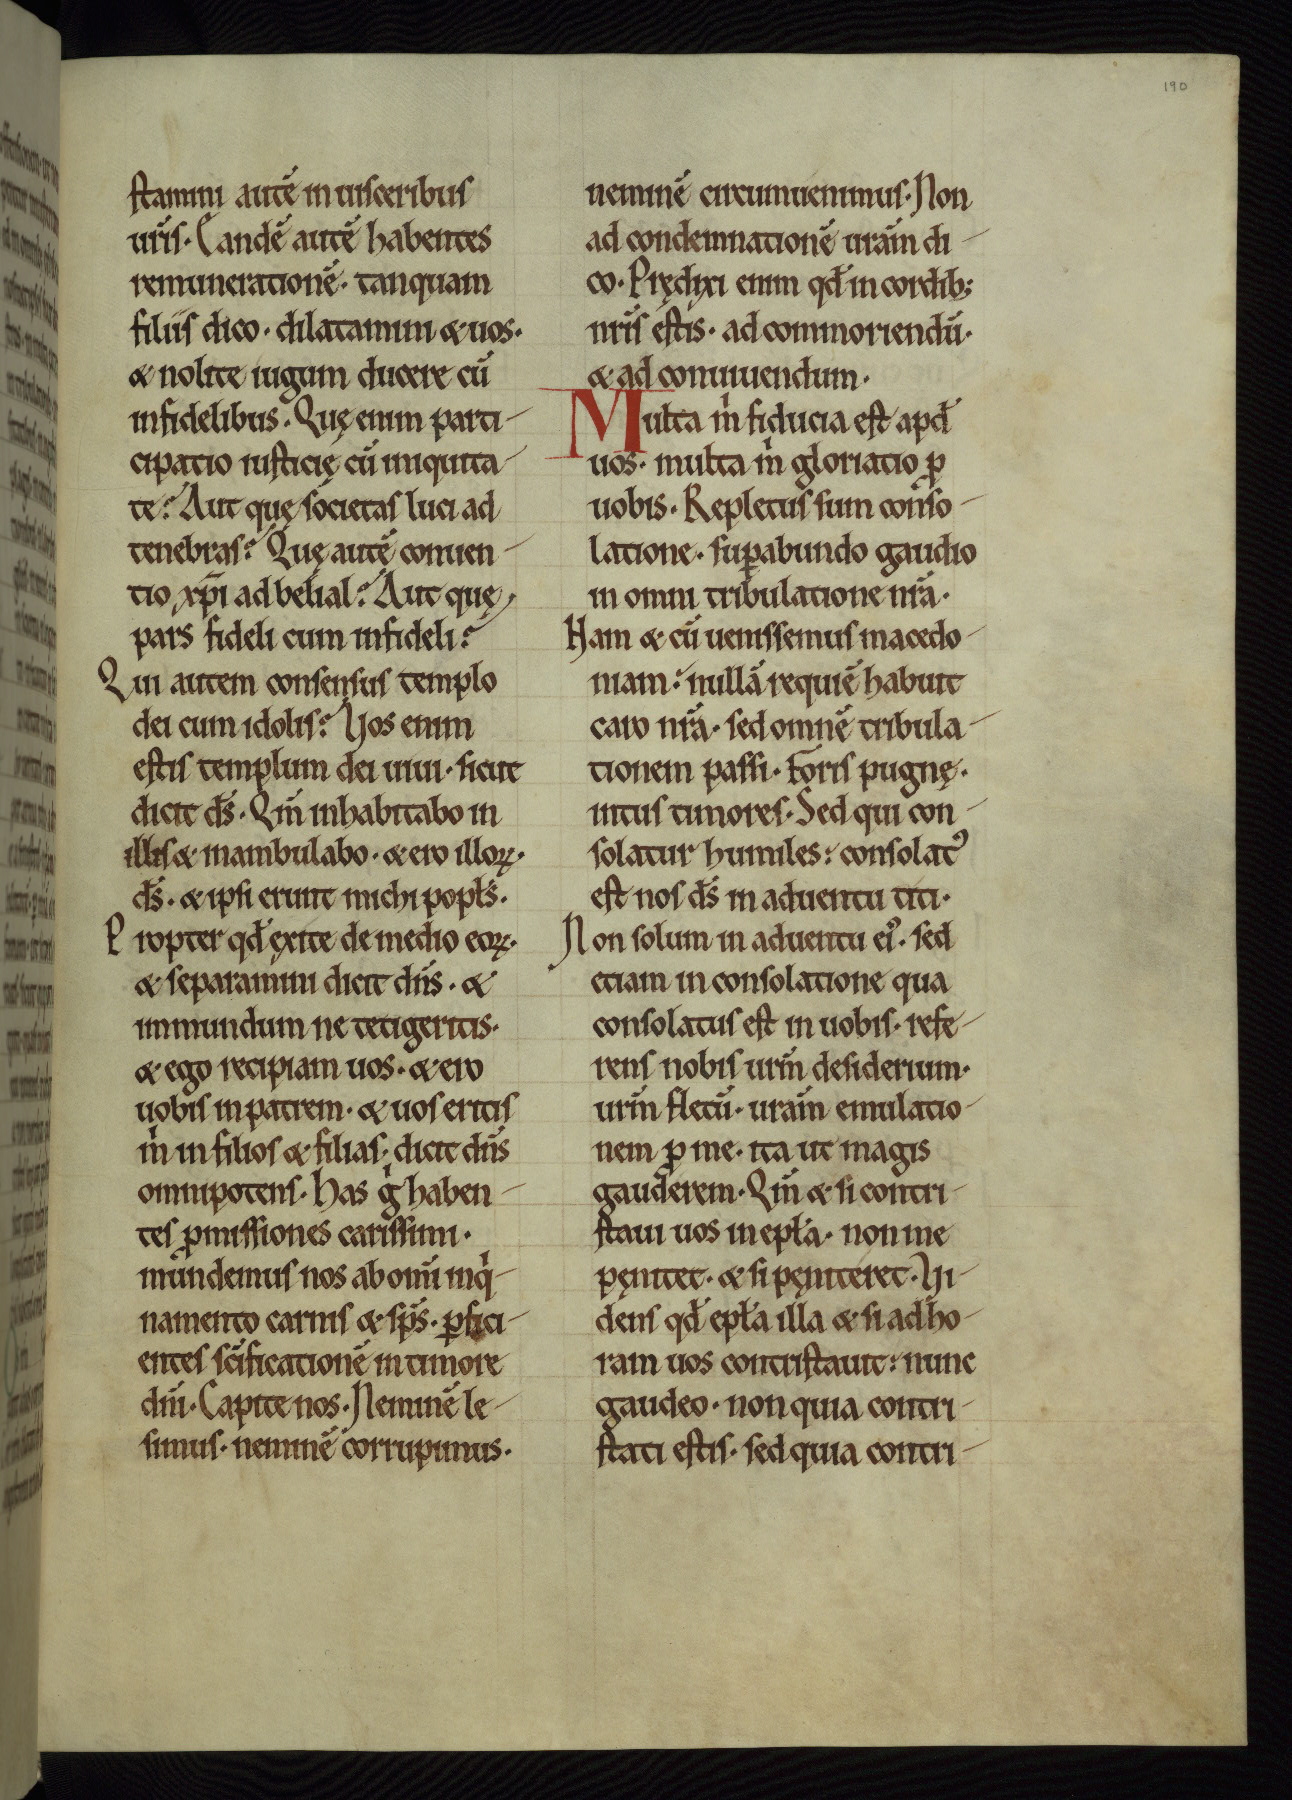 190
stamini autē in uisceribus
ur̄is. Eandē autē habentes
remunerationē. tanquam
filiis dico. dilatamini & uos.
& nolite iugum ducere cū
infidelibus. Quę enim parti-
cipatio iusticię cū iniquita-
te? Aut quę societas luci ad
tenebras? Quę autē conuen-
tio xp̄i ad belial? Aut quę
pars fideli cum infideli?
Qui autem consensus templo
dei cum idolis? Vos enim
estis templum dei uiui. sicut
dicit ds̄. Qm̄ inhabitabo in
illis & inambulabo. & ero illoꝝ.
ds̄. & ipsi erunt michi popl̄s.
Propter qđ exite de medio eoꝝ.
& separamini dicit dn̄s. &
immundum ne tetigeritis.
& ego recipiam uos. & ero
uobis in patrem. & uos eritis
m̍ in filios & filias. dicit dn̄s
omnipotens. Has g̍ haben-
tes ꝓmissiones carissimi.
mundemus nos ab om̄i inq̍-
namento carnis & sp̄s. ꝑfici-
entes sc̄ificationē in timore
dn̄i. Capite nos. Neminē le-
simus. neminē corrupimus.
neminē circumuenimus. Non
ad condemnationē uram̄ di-
co. Prędixi enim qđ in cordib;
nr̄is estis. ad commoriendū.
& ad conuiuendum.
Multa m̍ fiducia est apđ
uos. multa m̍ gloriatio ꝓ
uobis. Repletus sum conso-
latione. suꝑabundo gaudio
in omni tribulatione nr̄a.
Nam & cū uenissemus macedo-
niam: nullā requiē habuit
caro nr̄a. sed omnē tribula-
tionem passi. Foris pugnę.
intus timores. Sed qui con-
solatur humiles: consolatꝰ
est nos ds̄ in aduentu titi.
Non solum in aduentu eiꝰ. sed
etiam in consolatione qua
consolatus est in uobis. refe-
rens nobis urm̄ desiderium.
urm̄ fletū. uram̄ emulatio-
nem ꝓ me. ita ut magis
gauderem. Qm̄ & si contri-
staui uos in epl̄a. non me
pęnitet. & si pęniteret. Vi-
dens qđ epl̄a illa & si ad ho-
ram uos contristauit: nunc
gaudeo. non quia contri-
stati estis. sed quia contri-